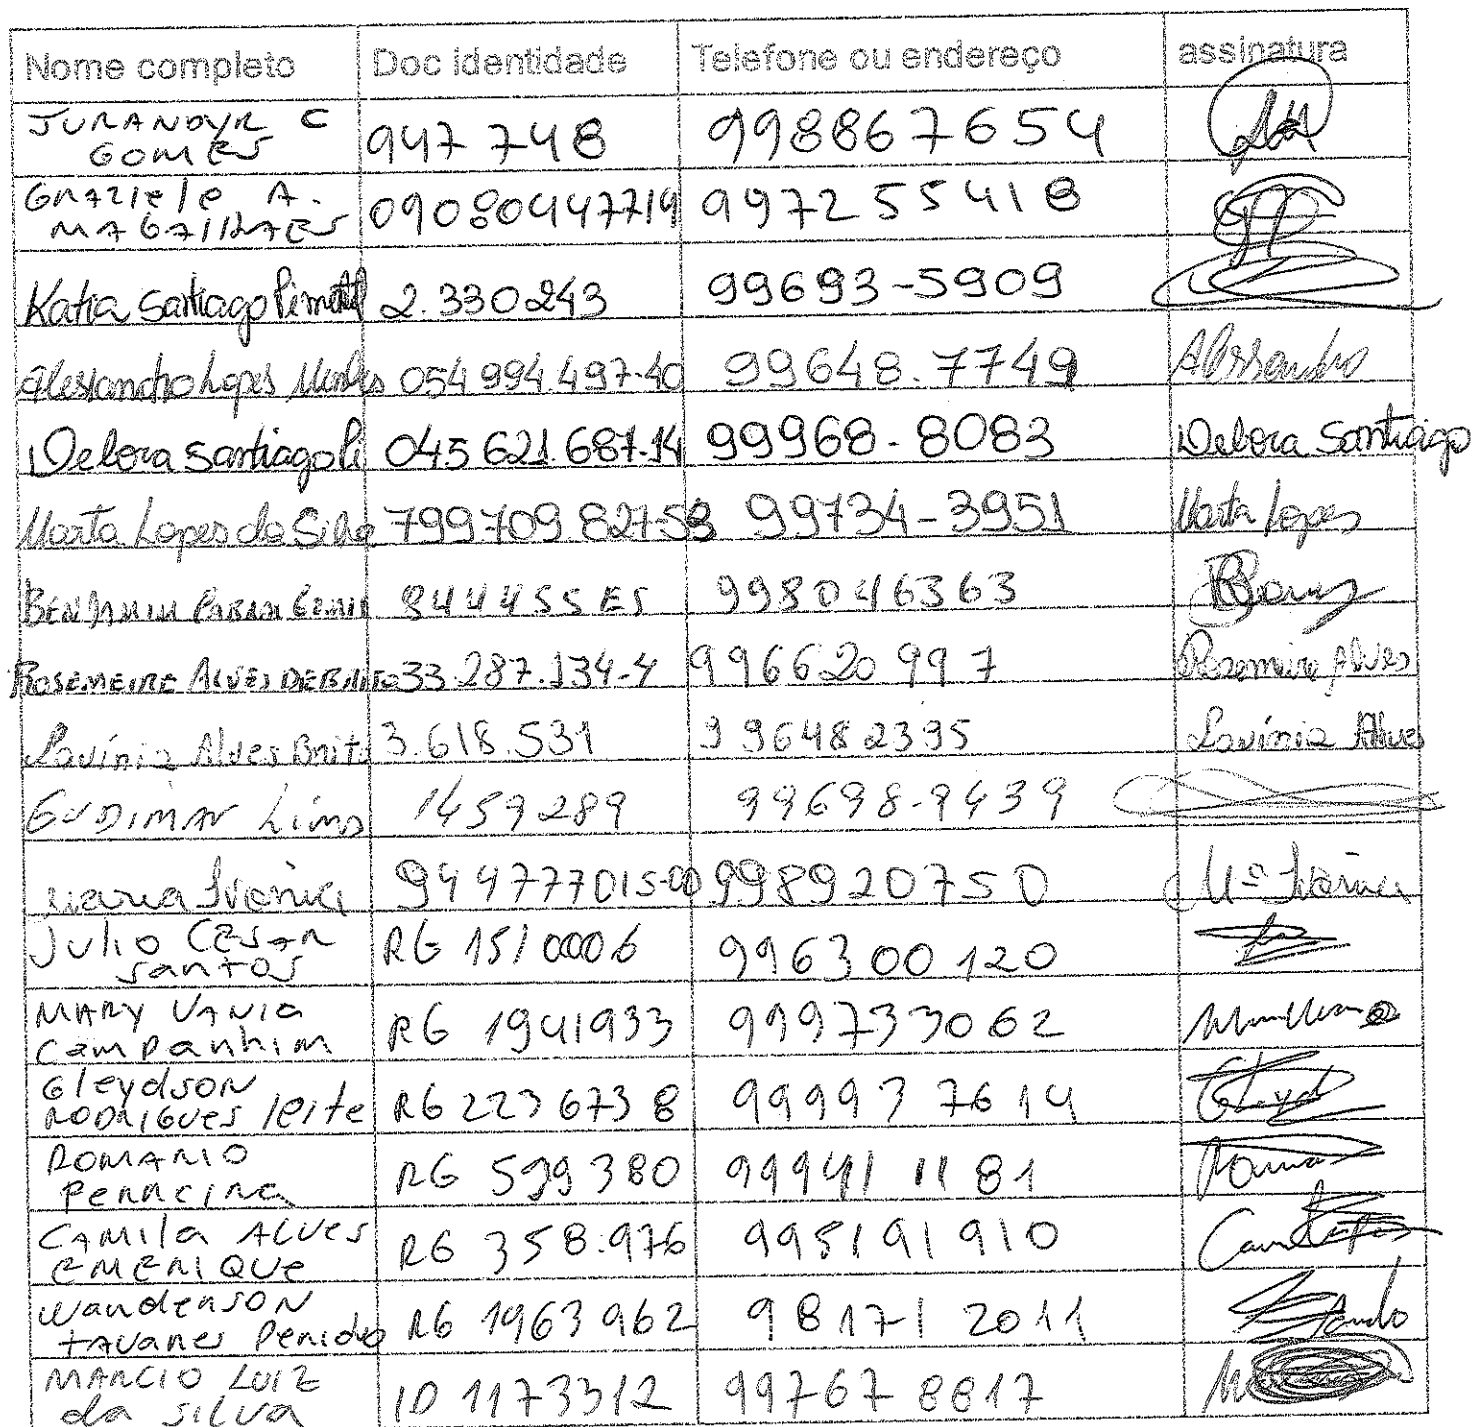 Nome completo Doc identidade Telefone ou endereço assinatura
JURANDYR C
GOMES 947 748 998867654
GRAZIELE A.
MAGALHAES 09080447719 997255418
Katia Santiago Pimentel 2.330243 99693-5909
Alessandro Lopes Mendes 054.994.497-40 99648.7749 Alessandro
Debora Santiago 045.621.687-14 99968-8083 Debora Santiago
Marta Lopes da Silva 799709.827-53 99734-3951 Marta Lopes
BENJAMIM 844455 ES 998046363
ROSEMEIRE ALVES DE BRITO 33.287.134-4 996620997 Rosemeire Alves
Lavínia Alves Brito 3.618.531 996482395 Lavínia Alves
GUDIMAR Lima 1459289 99698-9439
Maria Ivânia 944777015-00 998920750 Mª Ivânia
JULIO CESAR
SANTOS RG 1510006 996300120
MARY VANIA
Campanhim RG 1941933 999733062
Gleydson
RODRIGUES leite RG 2236738 999937614 Gleyd
ROMARIO
Perrcina RG 599380 99941 1181
CAMILA ALVES
EMERIQUE RG 358.976 995191910
Wanderson
tavares Penido RG 1963962 98171 2011
MARCIO LUIZ
da silva ID 1173312 99767 8817